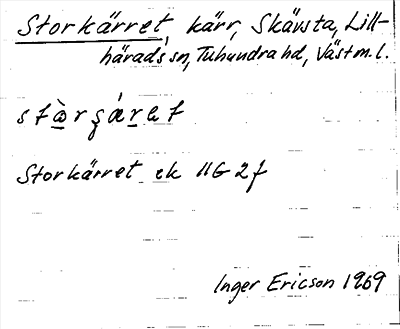 Storkärret, kärr, Skävsta, Lill-
härads sn, Tuhundra hd, Västm.l.
Storkärret ek 11G 2f
Inger Ericson 1969